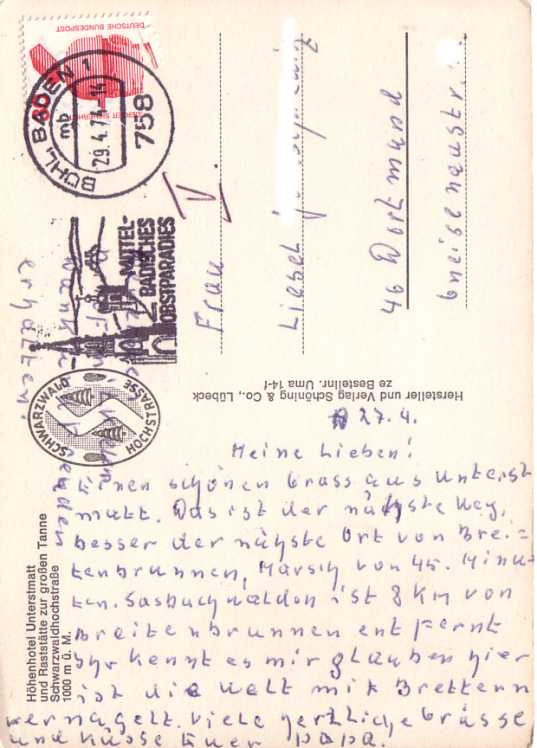 DEUTSCHE BUNDESPOST
BÜHL, BADEN 1
mb
29.4.74-14
758
MITTEL-
BADISCHES
OBSTPARADIES
V.
Frau
46 Dortmund
Gneisenaustr.
Hersteller und Verlag Schöning & Co., Lübeck
ze Bestellnr. Uma 14-f
SCHWARZWALD HOCHSTRASSE
Höhenhotel Unterstmatt
und Raststätte zur großen Tanne
Schwarzwaldhochstraße
1000 m ü. M.
27.4.
Meine Lieben!
Einen schönen Grass aus Unterst
matt. Das ist der nächste Weg,
besser der nächste Ort von Brei-
tenbrunnen, Marsch von 45. Minu
ten. Sasbachwalden ist 8 km von
Breitenbrunnen entfernt
Ihr kennt es mir glauben hier
ist die Welt mit Brettern
vernagelt. Viele herzliche Grüsse
und Küsse Euer Papa.
erhalten!